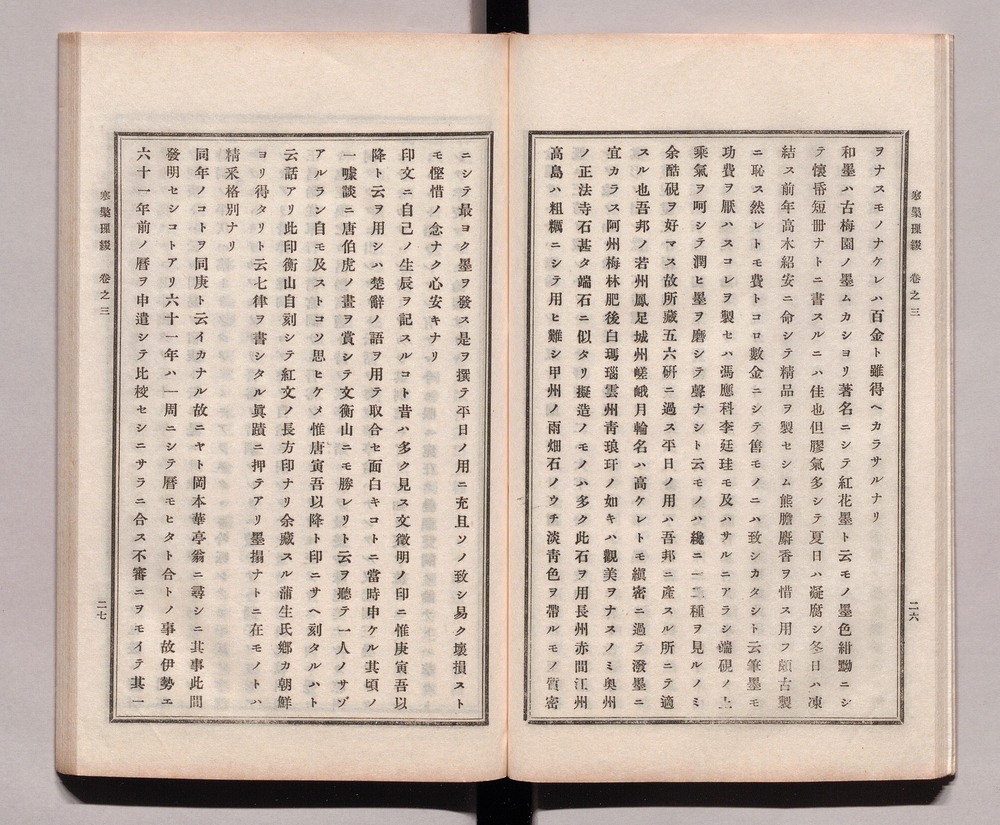 寒檠璅綴　卷之三
二六
ヲナスモノナケレハ百金ト雖得ヘカラサルナリ
和墨ハ古梅園ノ墨ムカシヨリ著名ニシテ紅花墨ト云モノ墨色紺黝ニシ
テ懷帋短册ナトニ書スルニハ佳也但膠氣多シテ夏日ハ凝腐シ冬日ハ凍
結ス前年高木紹安ニ命シテ精品ヲ製セシム熊膽麝香ヲ惜ス用フ頗古製
ニ恥ス然レトモ費トコロ數金ニシテ舊モノニハ致シカタシト云筆墨モ
功費ヲ厭ハスコレヲ製セハ馮應科李廷珪モ及ハサルニアラシ端硯ノ上
乘氣ヲ呵シテ潤ヒ墨ヲ磨シテ聲ナシト云モノハ纔ニ一二種ヲ見ルノミ
余酷硯ヲ好マス故所藏五六硏ニ過ス平日ノ用ハ吾邦ニ產スル所ニテ適
スル也吾邦ノ若州鳳足城州嵯峨月輪名ハ高ケレトモ縝密ニ過テ潑墨ニ
宜カラス阿州梅林肥後白瑪瑙雲州靑琅玕ノ如キハ觀美ヲナスノミ奧州
ノ正法寺石甚タ端石ニ似タリ擬造ノモノハ多ク此石ヲ用長州赤間江州
高島ハ粗糲ニシテ用ヒ難シ甲州ノ雨畑石ノウチ淡靑色ヲ帶ルモノ質密
ニシテ最ヨク墨ヲ發ス是ヲ撰テ平日ノ用ニ充且ソノ致シ易ク壞損スト
モ慳惜ノ念ナク心安キナリ
印文ニ自己ノ生辰ヲ記スルコト昔ハ多ク見ス文徵明ノ印ニ惟庚寅吾以
降ト云ヲ用シハ楚辭ノ語ヲ用テ取合セ面白キコトニ當時申ケル其頃ノ
一噱談ニ唐伯虎ノ畫ヲ賞シテ文衡山ニモ勝レリト云ヲ聽テ一人ノサゾ
アルラン自モ及ストコソ思ヒケメ惟唐寅吾以降ト印ニサヘ刻タルハト
云話アリ此印衡山自刻シテ紅文ノ長方印ナリ余藏スル蒲生氏鄕カ朝鮮
ヨリ得タリト云七律ヲ書シタル眞蹟ニ押テアリ墨搨ナトニ在モノトハ
精采格別ナリ
同年ノコトヲ同庚ト云イカナル故ニヤト岡本華亭翁ニ尋シニ其事此間
發明セシコトアリ六十一年ハ一周ニシテ曆モヒタト合トノ事故伊勢エ
六十一年前ノ曆ヲ申遣シテ比校セシニサラニ合ス不審ニヲモイテ其一
寒檠璅綴　卷之三
二七